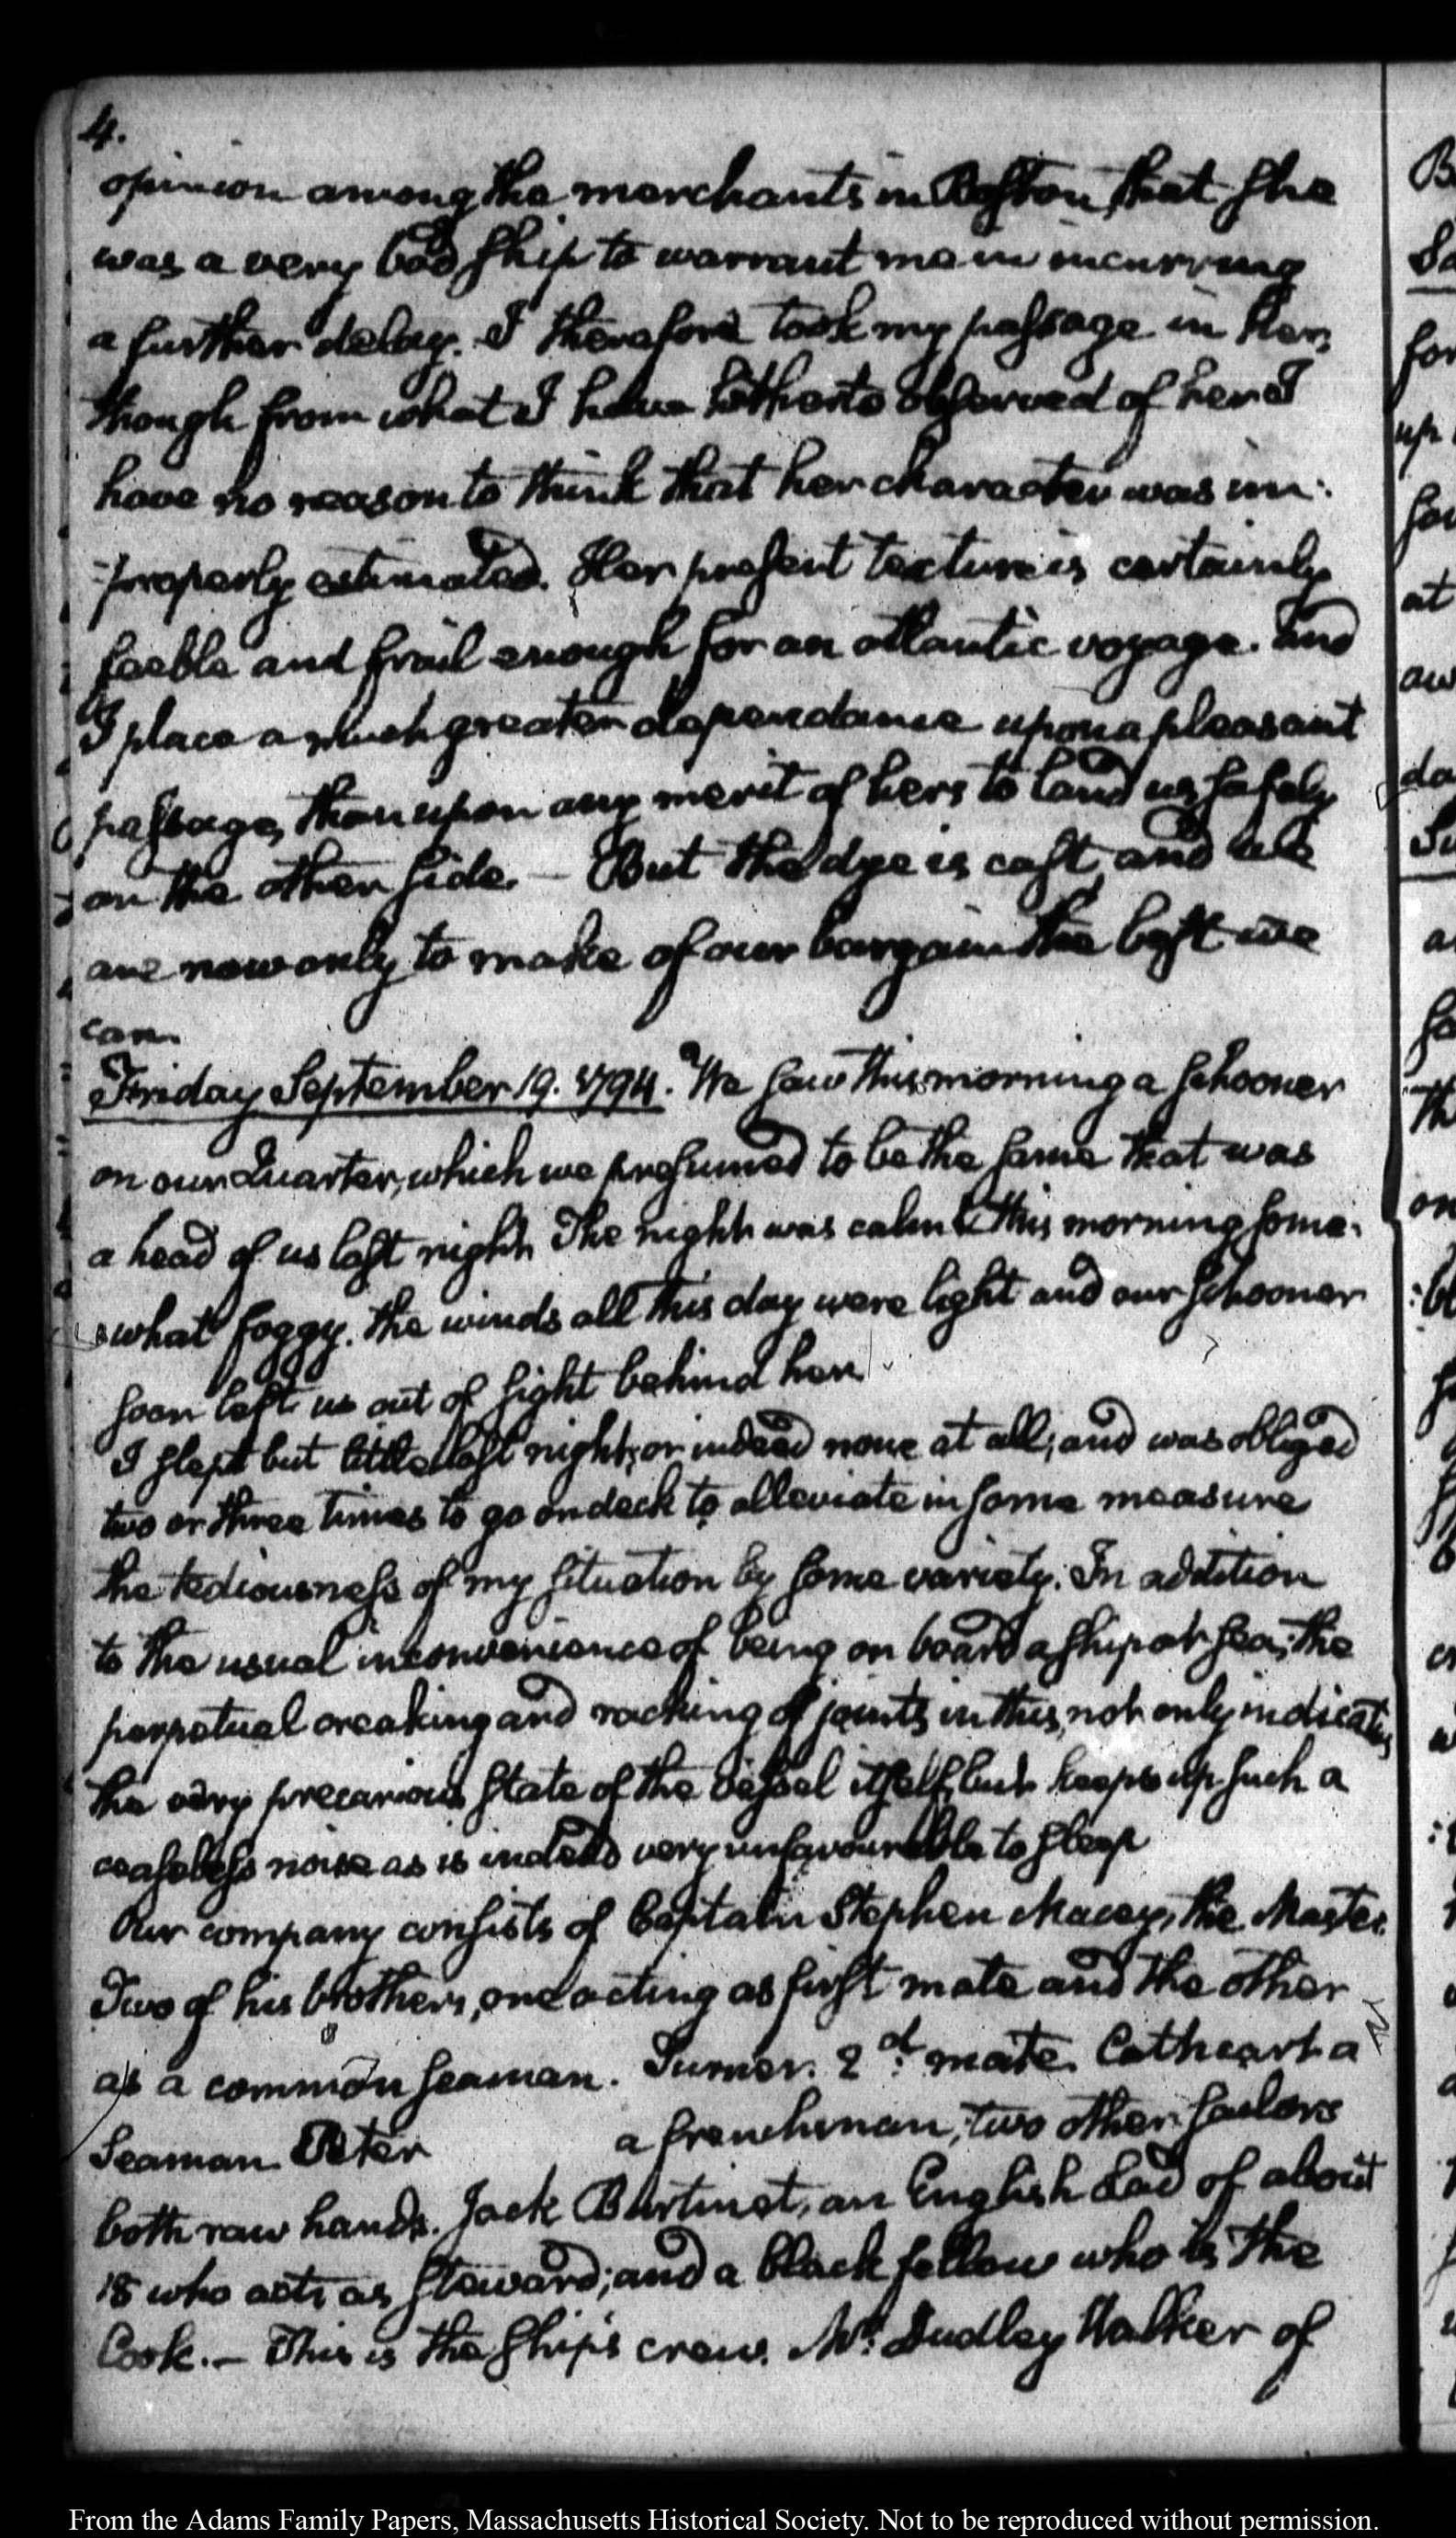 4.
opinion among the merchants in Boston, that she
was a very bad ship to warrant me in incurring
a further delay. I therefore took my passage in her,
though from what I have hitherto observed of her I
have no reason to think that her character was im:
:properly estimated. Her present texture is certainly
feeble and frail enough for an atlantic voyage. And
I place a much greater dependance upon a pleasant
passage, than upon any merit of hers to land us safely
on the other side. — But the dye is cast, and we
are now only to make of our bargain the best we
can.
Friday September 19. 1794. We saw this morning a schooner
on our Quarter, which we presumed to be the same that was
a head of us last night. The night was calm & this morning some-
what foggy. the winds all this day were light and our schooner
soon left us out of sight behind her.
I slept but little last night, or indeed none at all; and was obliged
two or three times to go on deck to alleviate in some measure
the tediousness of my situation by some variety. In addition
to the usual inconvenience of being on board a ship at sea, the
perpetual creaking and racking of joints in this, not only indicates
the very precarious state of the vessel itself, but keeps up such a
ceaseless noise as is indeed very unfavourable to sleep
Our company consists of Captain Stephen Macey, the Master.
Two of his brothers, one acting as first mate and the other
as a common seaman. Turner. 2d. mate. Cathcart a
Seaman. Peter a frenchman, two other sailors
both raw hands. Jack Burtinot, an English Lad of about
18 who acts as steward; and a black fellow who is the
Cook. — This is the ship's crew. Mr. Dudley Walker of
From the Adams Family Papers, Massachusetts Historical Society. Not to be reproduced without permission.